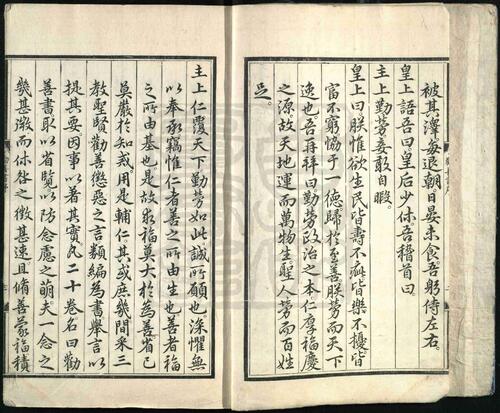 被其澤。每退朝。日晏未食。吾躬侍左右。
皇上語吾曰。皇后少休。吾稽首曰。
主上勤勞。妾敢自暇。
皇上曰。朕惟欲生民皆壽不疵。皆樂不擾。皆
富不窮。協于一德。歸於至善。朕勞而天下
逸也。吾再拜曰。勤勞政治之本。仁厚福慶
之源。故天地運而萬物生。聖人勞而百姓
足。
主上仁覆天下勤勞如此誠所願也深懼無
以奉承竊惟仁者善之所由生也善者福
之所由基也是故福莫大於為善省己
莫嚴於知戒用是輔仁其或庶幾間采三
教聖賢勸善懲惡之言類編為書舉言以
提其要因事以著其實凡二十卷名曰勸
善書取以省覽以防念慮之萌夫一念之
幾甚微而休咎之徵甚速且脩善蒙福積